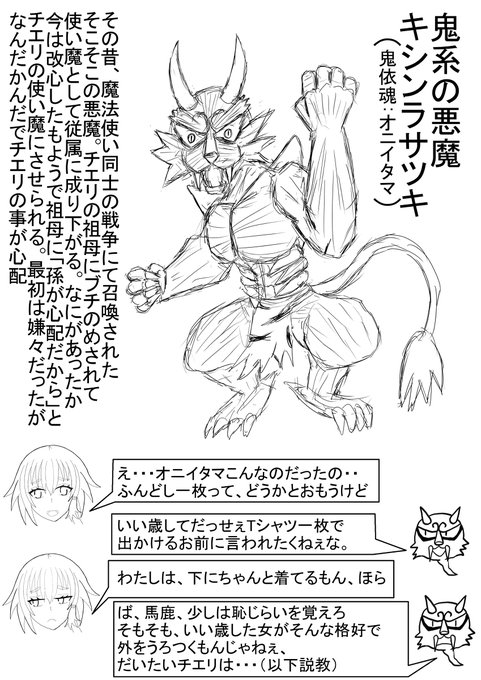 鬼系の悪魔
キシンラサツキ
（鬼依魂：オニイタマ）
その昔、魔法使い同士の戦争にて召喚された
そこそこの悪魔。チエリの祖母にブチのめされて
使い魔として従属に成り下がる。なにがあったか
今は改心したもようで祖母に「孫が心配だから」と
チエリの使い魔にさせられる。最初は嫌々だったが
なんだかんだでチエリの事が心配
え・・・オニイタマこんなのだったの・・
ふんどし一枚って、どうかとおもうけど
いい歳してだっせぇTシャツ一枚で
出かけるお前に言われたくねぇな。
わたしは、下にちゃんと着てるもん、ほら
ば、馬鹿、少しは恥じらいを覚えろ
そもそも、いい歳した女がそんな格好で
外をうろつくもんじゃねぇ、
だいたいチエリは・・・（以下説教）